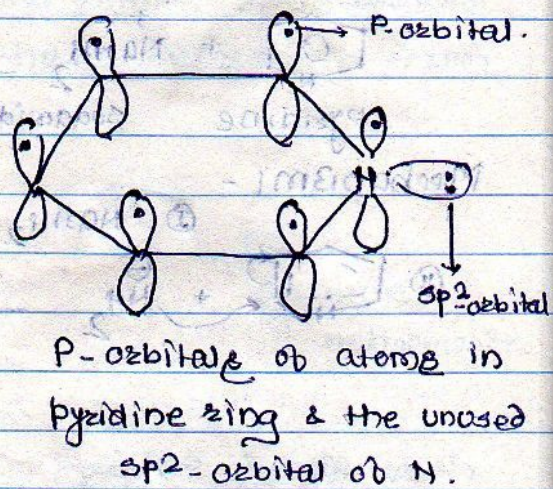 P-orbital.
N
sp2-orbital
P-orbitals of atoms in
pyridine ring & the unused
sp2-orbital of N.